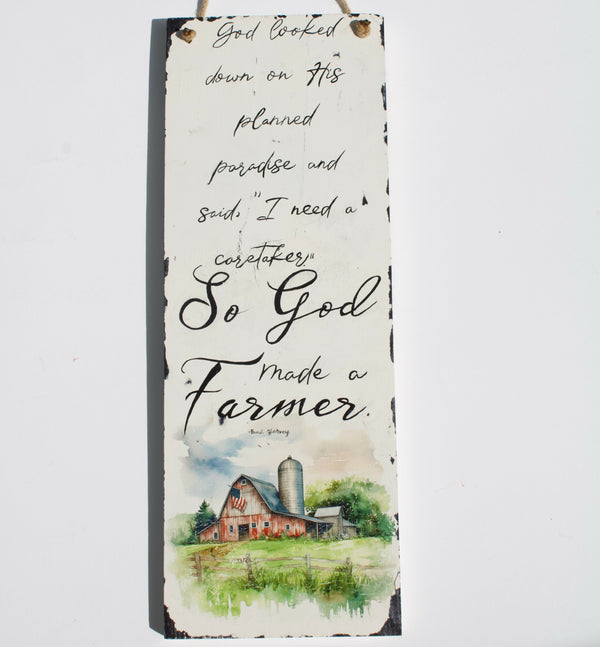 God looked
down on His
planned
paradise and
said, "I need a
caretaker."
So God
made a
Farmer.
-Paul Harvey